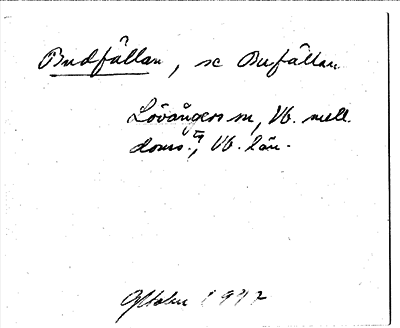 Budfällan, se Bufällan
Lövångers sn, Vb. mell.
doms.
, Vb. län.
1937